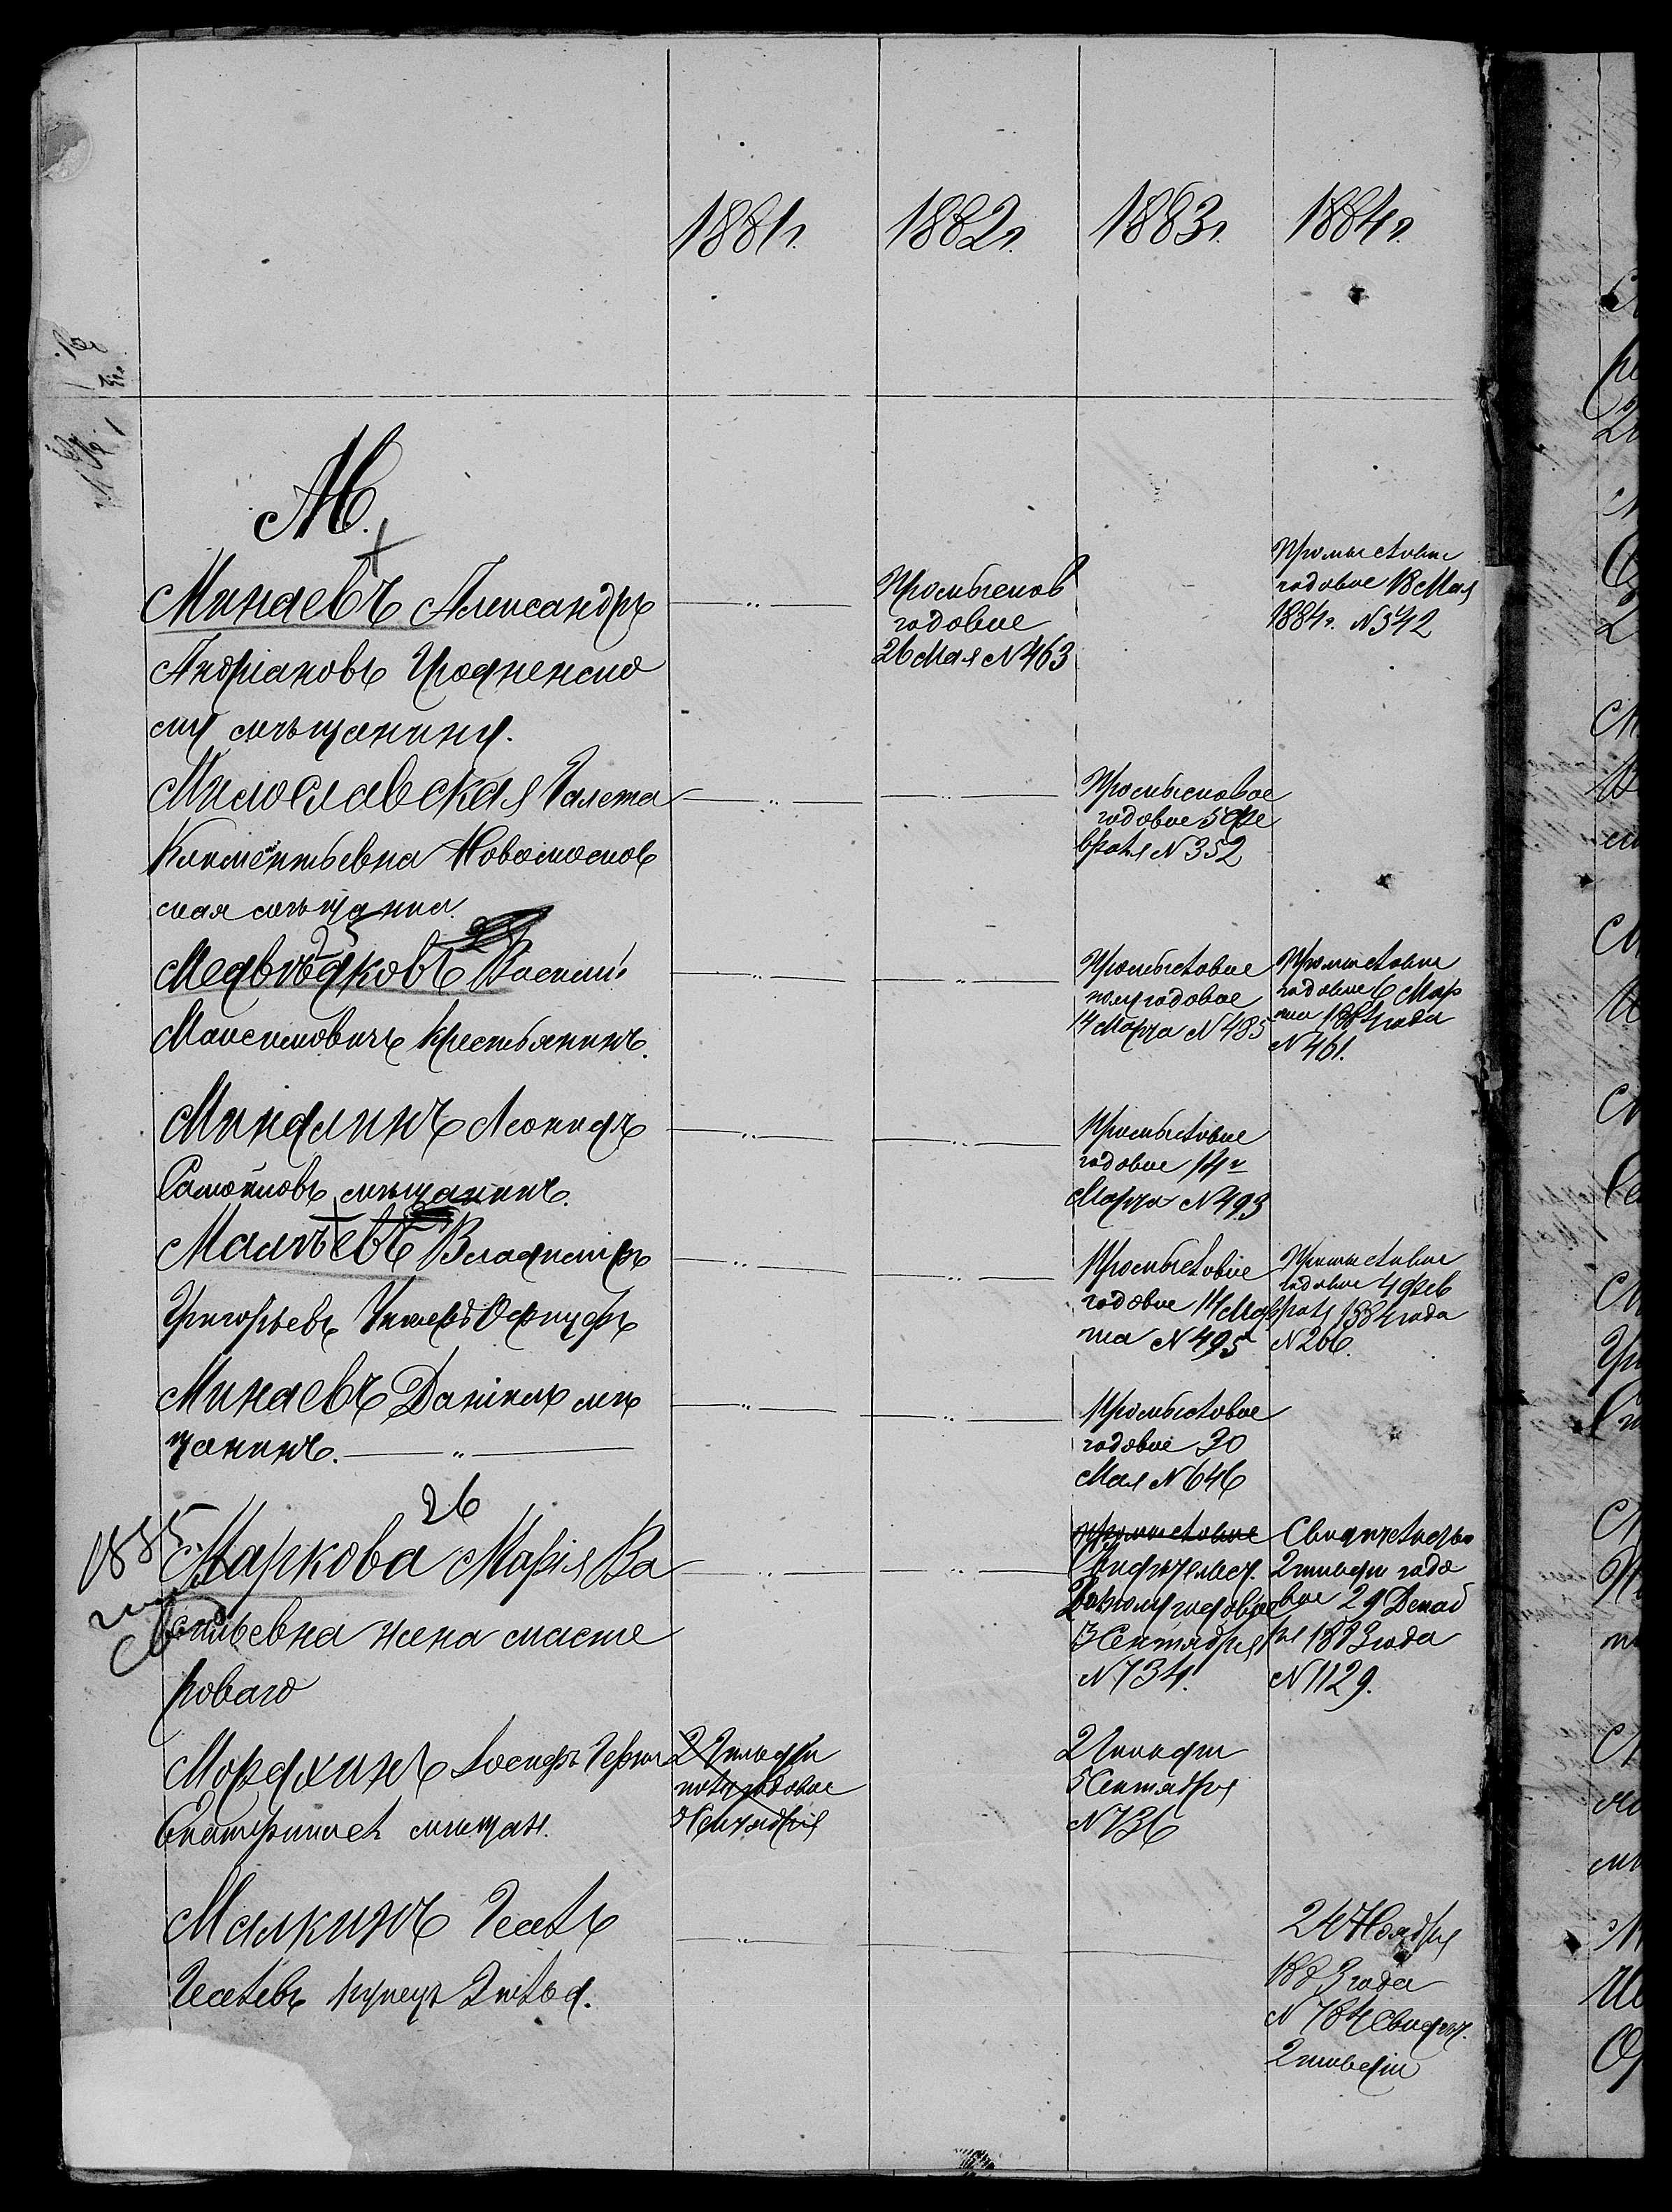 1881г. 1882г. 1883г. 1884г.
М.
Минаевъ Александръ
Андріановъ Гродненско
му мѣщанину.
Промыслов
годовое
26 Мая №463
Промысловое
годовое 18 Мая
1884г. №342
Милославская
Климентьевна Новомосков
ская мѣщанка.
Промысловое
годовое 5 Фе
враля №352
25
Медвѣдковъ Василій
Максимовичъ крестьянинъ.
Промысловое
полугодовое
14 Марта №485
Промысловое
годовое 6 Мар
та 1884 года
№461.
Миндлинъ Леонидъ
Самойловъ мѣщанинъ.
Промысловое
годовое 14го
Марта №493
Малѣевъ Владиміръ
Григорьевъ Унтеръ Офицеръ
Промысловое
годовое 14 Мар
та №495
Промысловое
годовое 4 Фев
раля 1884 года
№206.
Минаевъ Даніилъ мѣ
щанинъ.
Промысловое
годовое 30
Мая №646
26
1885
Маркова Марія Ва
сильевна жена масте
роваго
Промысловое
Свидѣтельст.
2 полугодовое
3 Сентября
№734.
Свидѣтельство
2 гильдіи годо
вое 29 Декаб
ря 1883 года
№1129.
Мордхинъ Іосифъ
Екатеринос. мѣщан.
2 Гильдіи
полугодовое
Сентября
2 Гильдіи
5 Сентября
№736
Малкинъ
купецъ 2 гильд.
24 Ноября
1883 года
№784 Свидѣт.
2 гильдіи